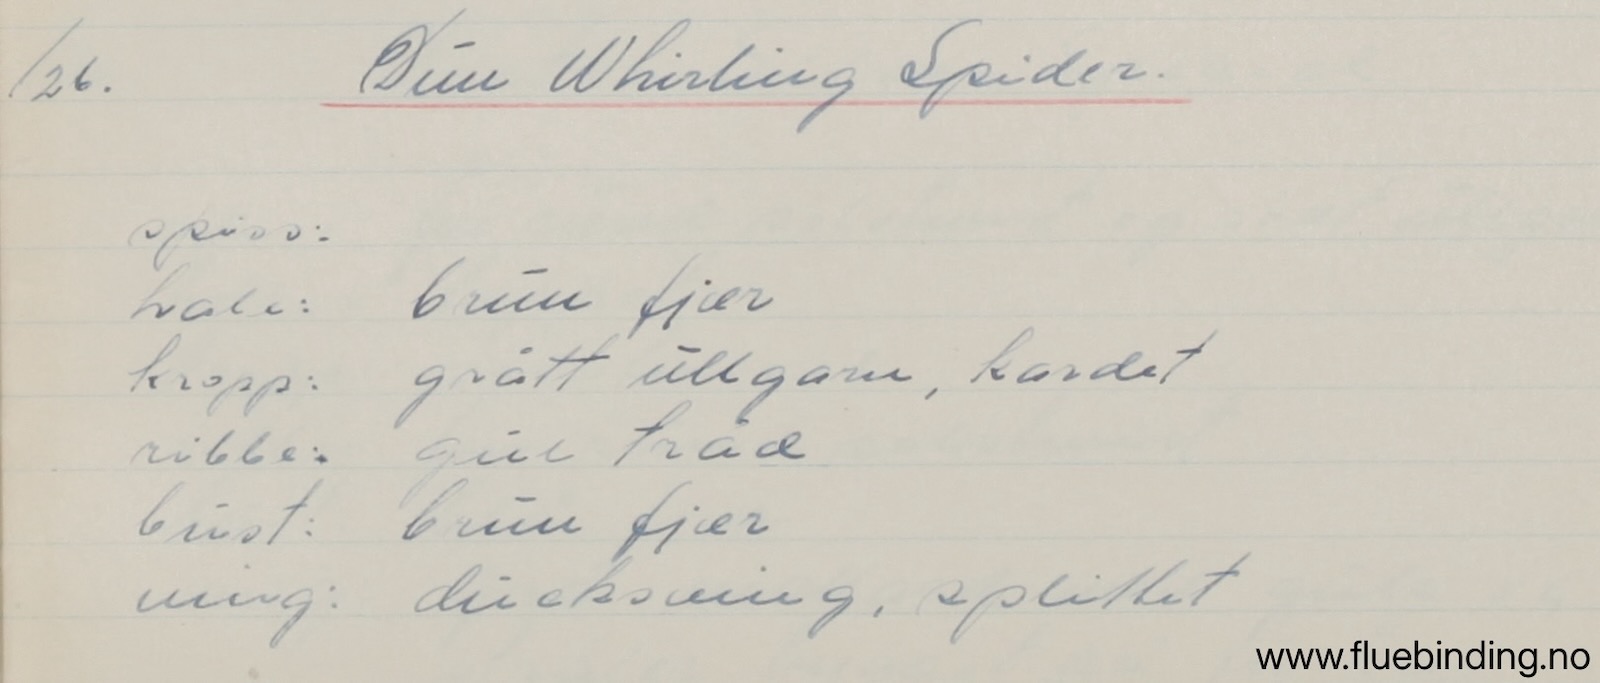 126. Dun Whirling Spider.
spiss:
hale: brun fjær
kropp: grått ullgarn, kardet
ribbe: gul tråd
bust: brun fjær
ving: duckswing, splittet
www.fluebinding.no